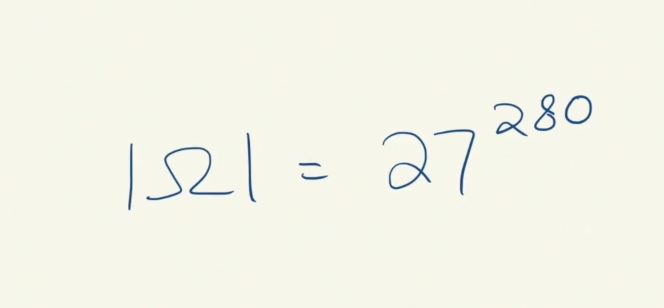 |Ω| = 27^280